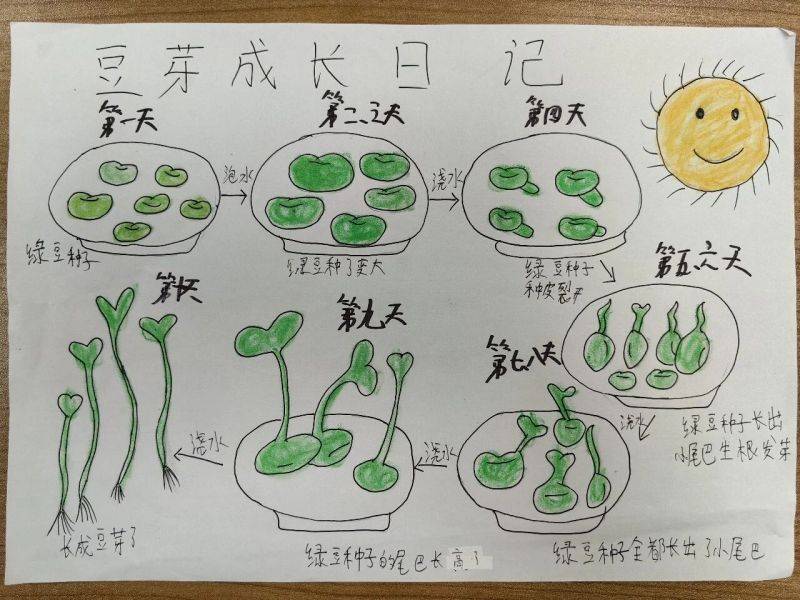 豆芽成长日记
第一天
泡水
第二、三天
浇水
第四天
绿豆种子
绿豆种子变大
绿豆种子
种皮裂开
第五、六天
浇水
绿豆种子长出
小尾巴生根发芽
第七、八天
绿豆种子全都长出了小尾巴
浇水
第九天
绿豆种子的尾巴长高了
浇水
第十天
长成豆芽了